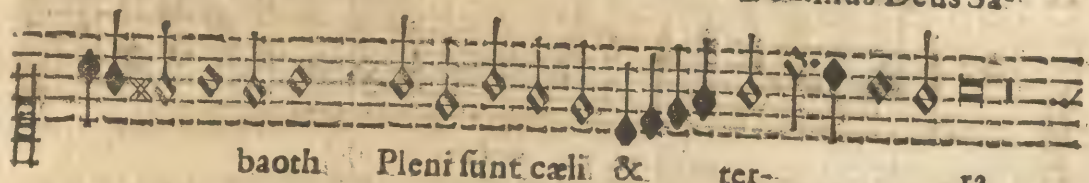 Deus Sa-
baoth. Pleni sunt cæli & ter- ra